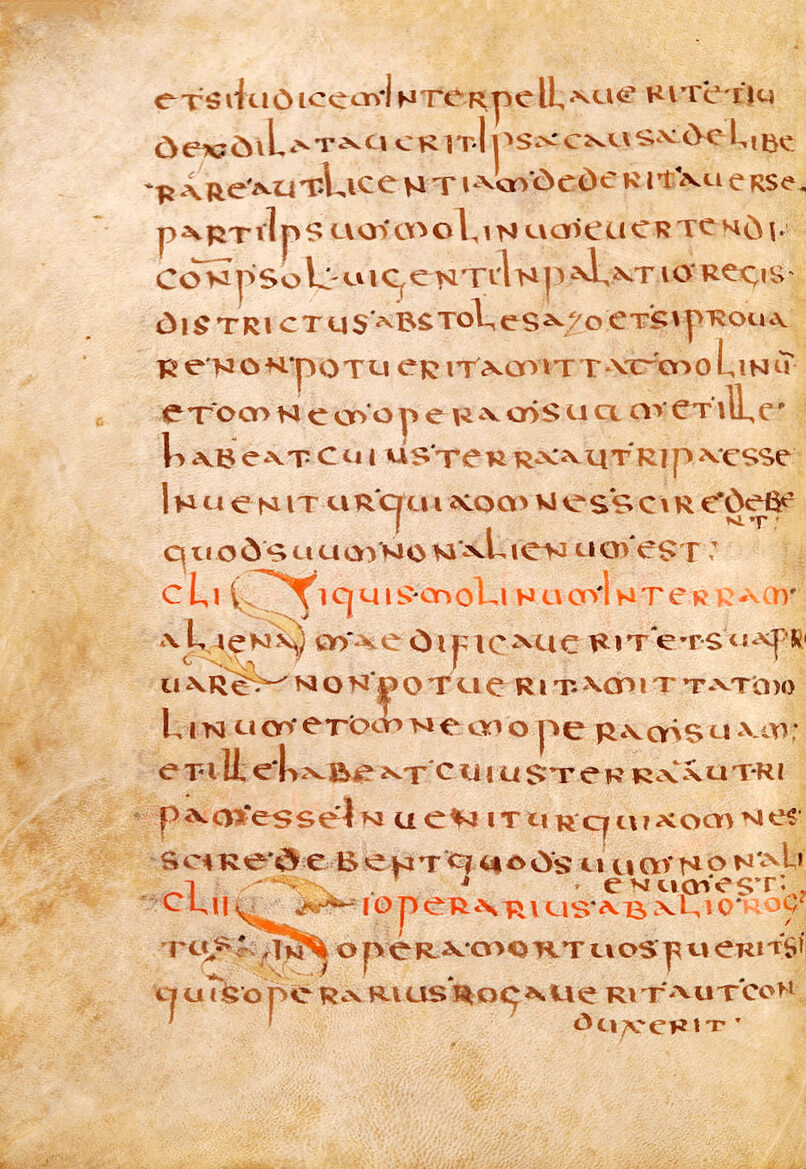 et si iudicem interpellauerit et iu
dex dilatauerit ipsa causa delibe
rare aut licentiam dederit auerse
parti ipsum molinum euertendi
conp sol uigenti in palatio regis
districtus ab stolesazo et si proua
re non potuerit amittat molinū
et omnem operam suam et ille
habeat cuius terra aut ripa esse
inuenitur quia omnes scire debe
nt
quod suum non alienum est
CLI Si quis molinum in terram
alienam aedificauerit et sua pro
uare non potuerit amittat mo
linum et omnem operam suam
et ille habeat cuius terra aut ri
pam esse inuenitur quia omnes
scire debent quod suum non ali
enum est
CLII Si operarius ab alio roga
tus in opera mortuos fuerit si
quis operarius rogauerit aut con
duxerit